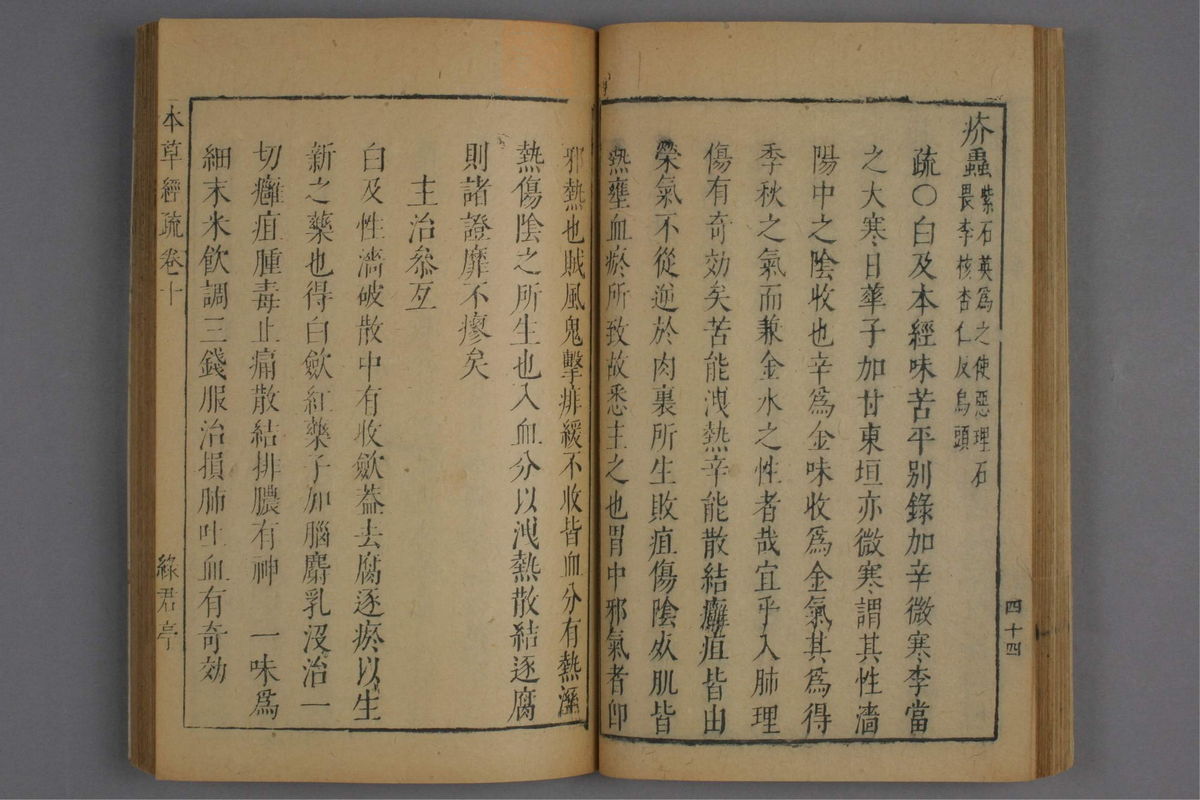 疥蟲紫石英爲之使惡理石
畏李核杏仁反烏頭
疏○白及本經味苦平别錄加辛微寒李當
之大寒日華子加甘東垣亦微寒謂其性濇
陽中之陰收也辛爲金味收爲金氣其爲得
季秋之氣而兼金水之性者哉宜乎入肺理
傷有奇効矣苦能洩熱辛能散結癰疽皆由
榮氣不從逆於肉裏所生敗疽傷陰死肌皆
熱壅血瘀所致故悉主之也胃中邪氣者卽
四十四
邪熱也賊風鬼擊痱緩不收皆血分有熱溼
熱傷陰之所生也入血分以洩熱散結逐腐
則諸證靡不瘳矣
主治叅互
白及性濇破散中有收歛葢去腐逐瘀以生
新之藥也得白歛紅藥子加腦麝乳沒治一
切癰疽腫毒止痛散結排膿有神　一味爲
細末米飲調三錢服治損肺吐血有奇効
本草經疏卷十
綠君亭